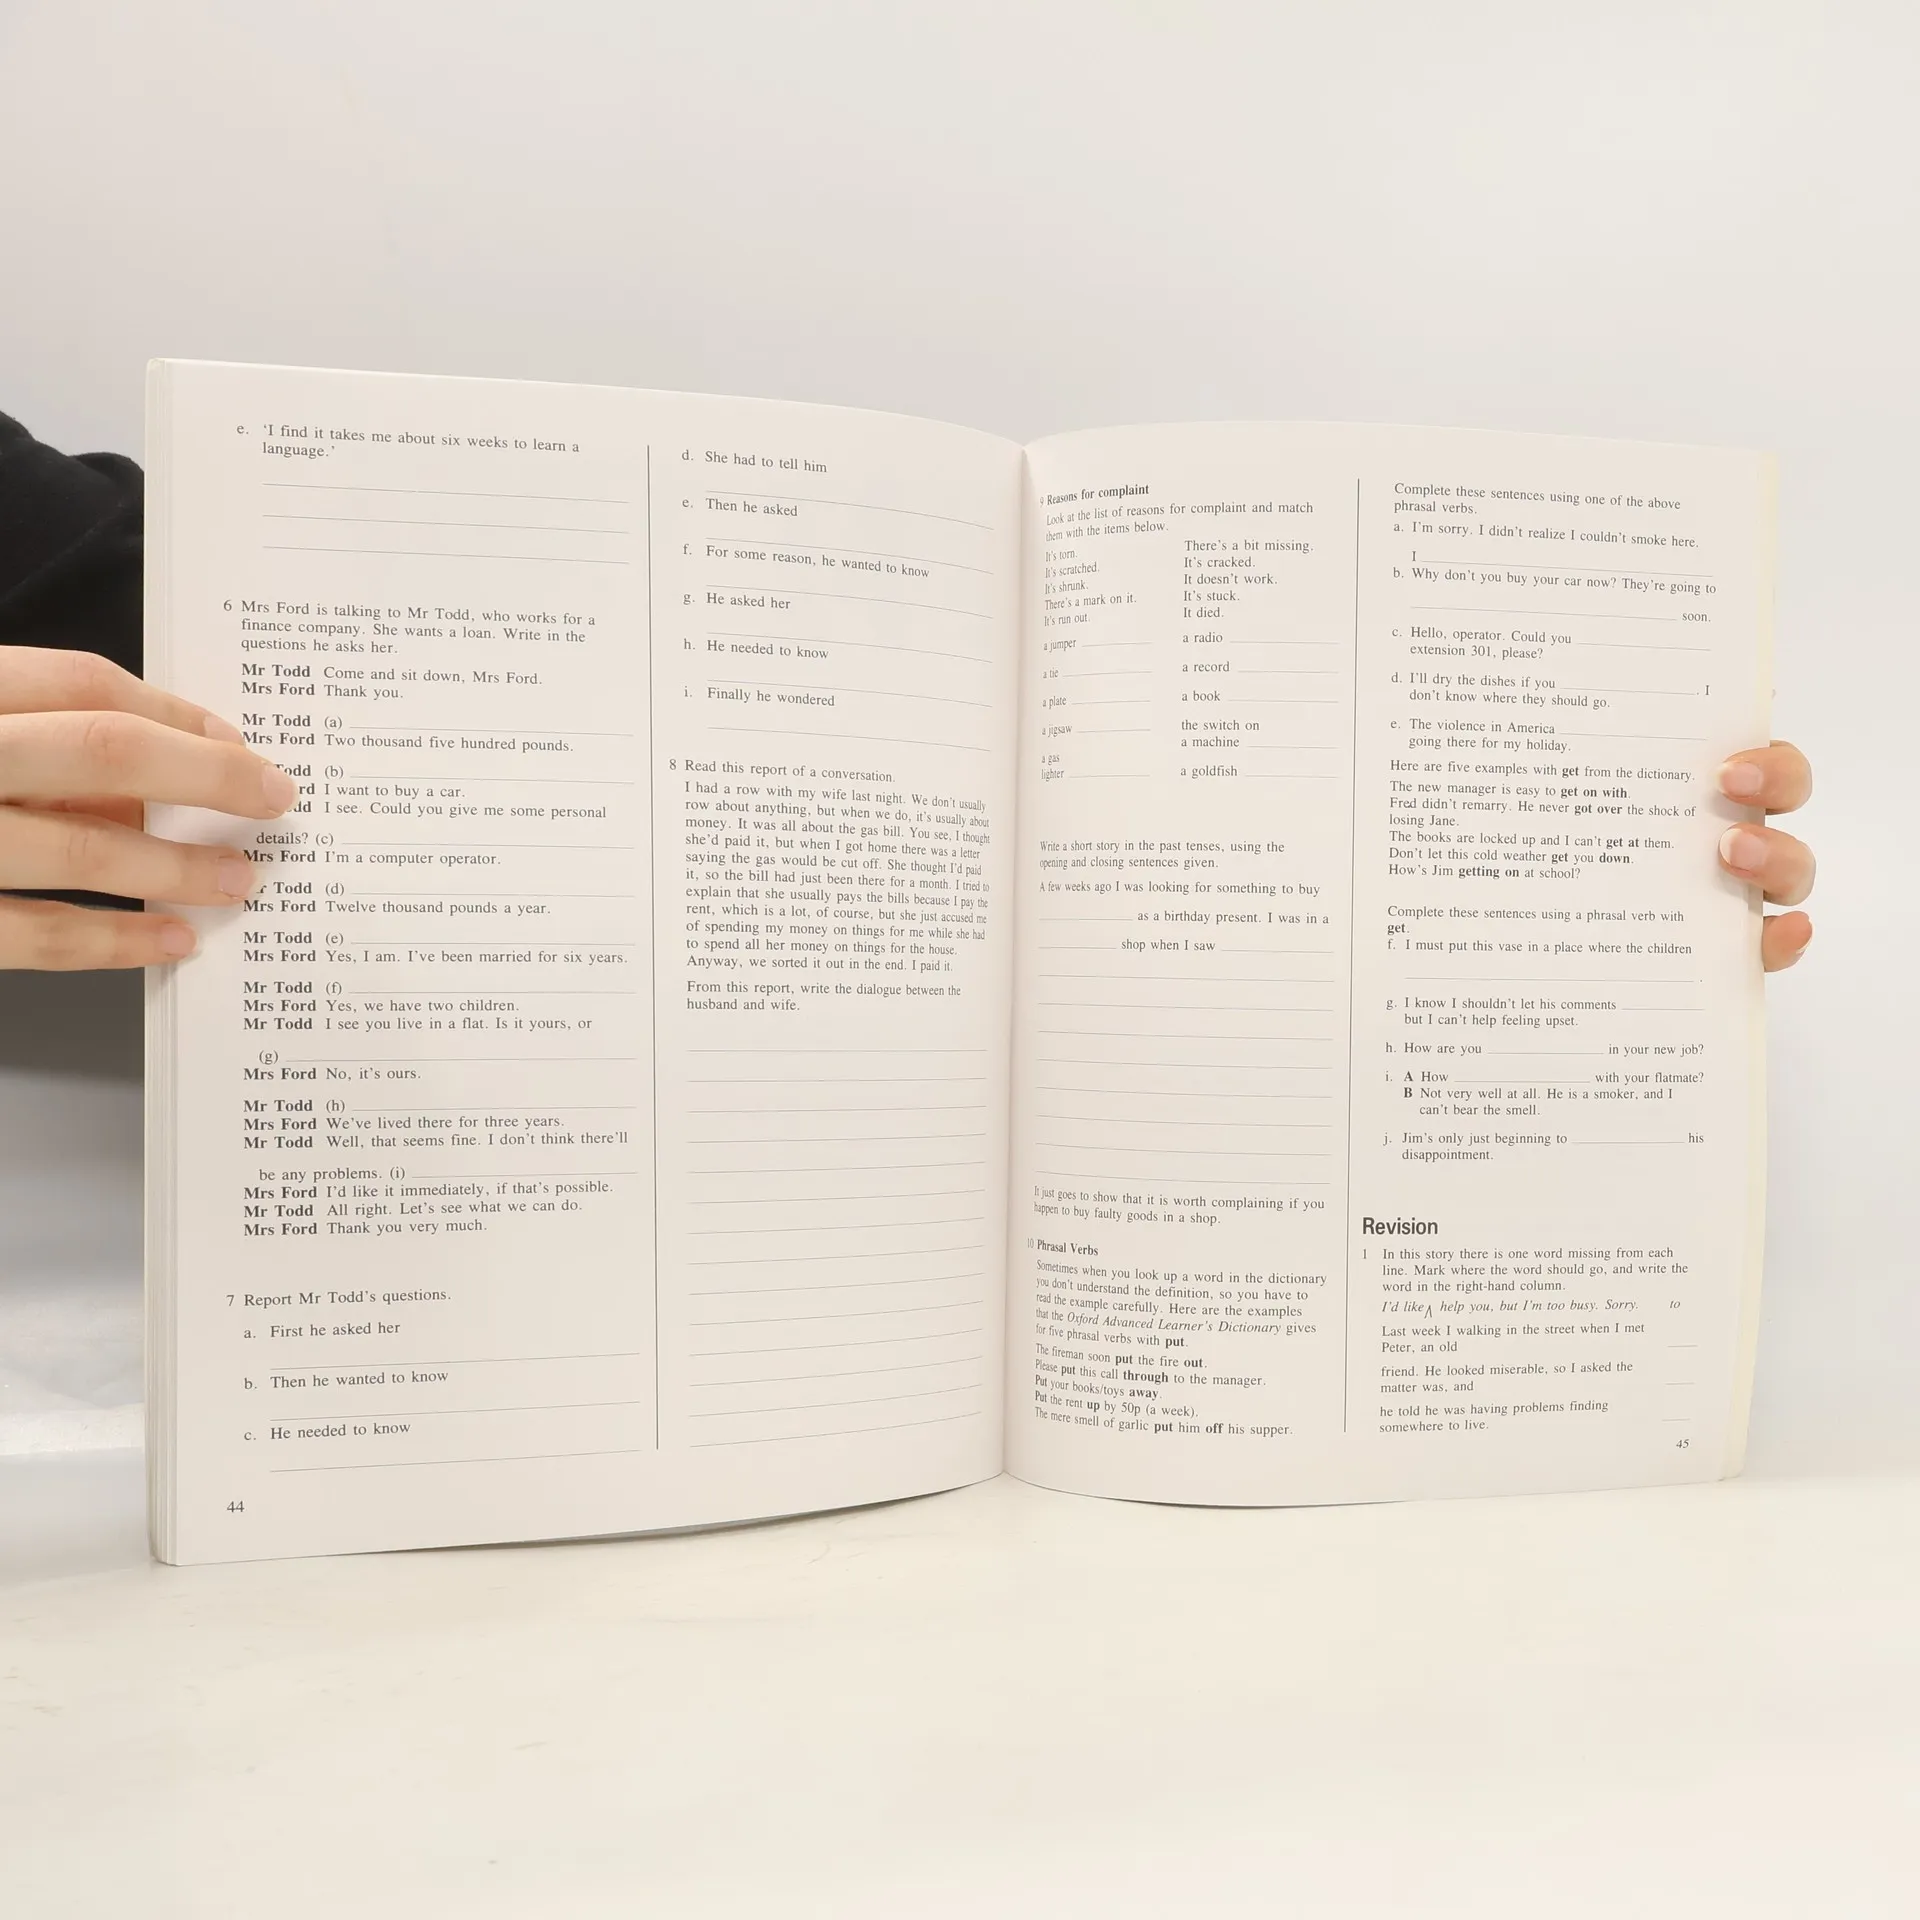 e. 'I find it takes me about six weeks to learn a
language.'
6 Mrs Ford is talking to Mr Todd, who works for a
finance company. She wants a loan. Write in the
questions he asks her.
Mr Todd Come and sit down, Mrs Ford.
Mrs Ford Thank you.
Mr Todd (a)
Mrs Ford Two thousand five hundred pounds.
(b)
I want to buy a car.
I see. Could you give me some personal
details? (c)
Mrs Ford I'm a computer operator.
Todd (d)
Mrs Ford Twelve thousand pounds a year.
Mr Todd (e)
Mrs Ford Yes, I am. I've been married for six years.
Mr Todd (f)
Mrs Ford Yes, we have two children.
Mr Todd I see you live in a flat. Is it yours, or
(g)
Mrs Ford No, it's ours.
Mr Todd (h)
Mrs Ford We've lived there for three years.
Mr Todd Well, that seems fine. I don't think there'll
be any problems. (i)
Mrs Ford I'd like it immediately, if that's possible.
Mr Todd All right. Let's see what we can do.
Mrs Ford Thank you very much.
7 Report Mr Todd's questions.
a. First he asked her
b. Then he wanted to know
c. He needed to know
44
d. She had to tell him
e. Then he asked
f. For some reason, he wanted to know
g. He asked her
h. He needed to know
i. Finally he wondered
8 Read this report of a conversation.
I had a row with my wife last night. We don't usually
row about anything, but when we do, it's usually about
money. It was all about the gas bill. You see, I thought
she'd paid it, but when I got home there was a letter
saying the gas would be cut off. She thought I'd paid
it, so the bill had just been there for a month. I tried to
explain that she usually pays the bills because I pay the
rent, which is a lot, of course, but she just accused me
of spending my money on things for me while she had
to spend all her money on things for the house.
Anyway, we sorted it out in the end. I paid it.
From this report, write the dialogue between the
husband and wife.
9 Reasons for complaint
Look at the list of reasons for complaint and match
them with the items below.
It's torn. There's a bit missing.
It's scratched. It's cracked.
It's shrunk. It doesn't work.
There's a mark on it. It's stuck.
It's run out. It died.
a jumper a radio
a tie a record
a plate a book
a jigsaw the switch on
a machine
a gas
lighter a goldfish
Write a short story in the past tenses, using the
opening and closing sentences given.
A few weeks ago I was looking for something to buy
as a birthday present. I was in a
shop when I saw
It just goes to show that it is worth complaining if you
happen to buy faulty goods in a shop.
10 Phrasal Verbs
Sometimes when you look up a word in the dictionary
you don't understand the definition, so you have to
read the example carefully. Here are the examples
that the Oxford Advanced Learner's Dictionary gives
for five phrasal verbs with put.
The fireman soon put the fire out.
Please put this call through to the manager.
Put your books/toys away.
Put the rent up by 50p (a week).
The mere smell of garlic put him off his supper.
Complete these sentences using one of the above
phrasal verbs.
a. I'm sorry. I didn't realize I couldn't smoke here.
I
b. Why don't you buy your car now? They're going to
soon.
c. Hello, operator. Could you
extension 301, please?
d. I'll dry the dishes if you . I
don't know where they should go.
e. The violence in America
going there for my holiday.
Here are five examples with get from the dictionary.
The new manager is easy to get on with.
Fred didn't remarry. He never got over the shock of
losing Jane.
The books are locked up and I can't get at them.
Don't let this cold weather get you down.
How's Jim getting on at school?
Complete these sentences using a phrasal verb with
get.
f. I must put this vase in a place where the children
.
g. I know I shouldn't let his comments
but I can't help feeling upset.
h. How are you in your new job?
i. A How with your flatmate?
B Not very well at all. He is a smoker, and I
can't bear the smell.
j. Jim's only just beginning to his
disappointment.
Revision
1 In this story there is one word missing from each
line. Mark where the word should go, and write the
word in the right-hand column.
I'd like help you, but I'm too busy. Sorry. to
Last week I walking in the street when I met
Peter, an old
friend. He looked miserable, so I asked the
matter was, and
he told he was having problems finding
somewhere to live.
45